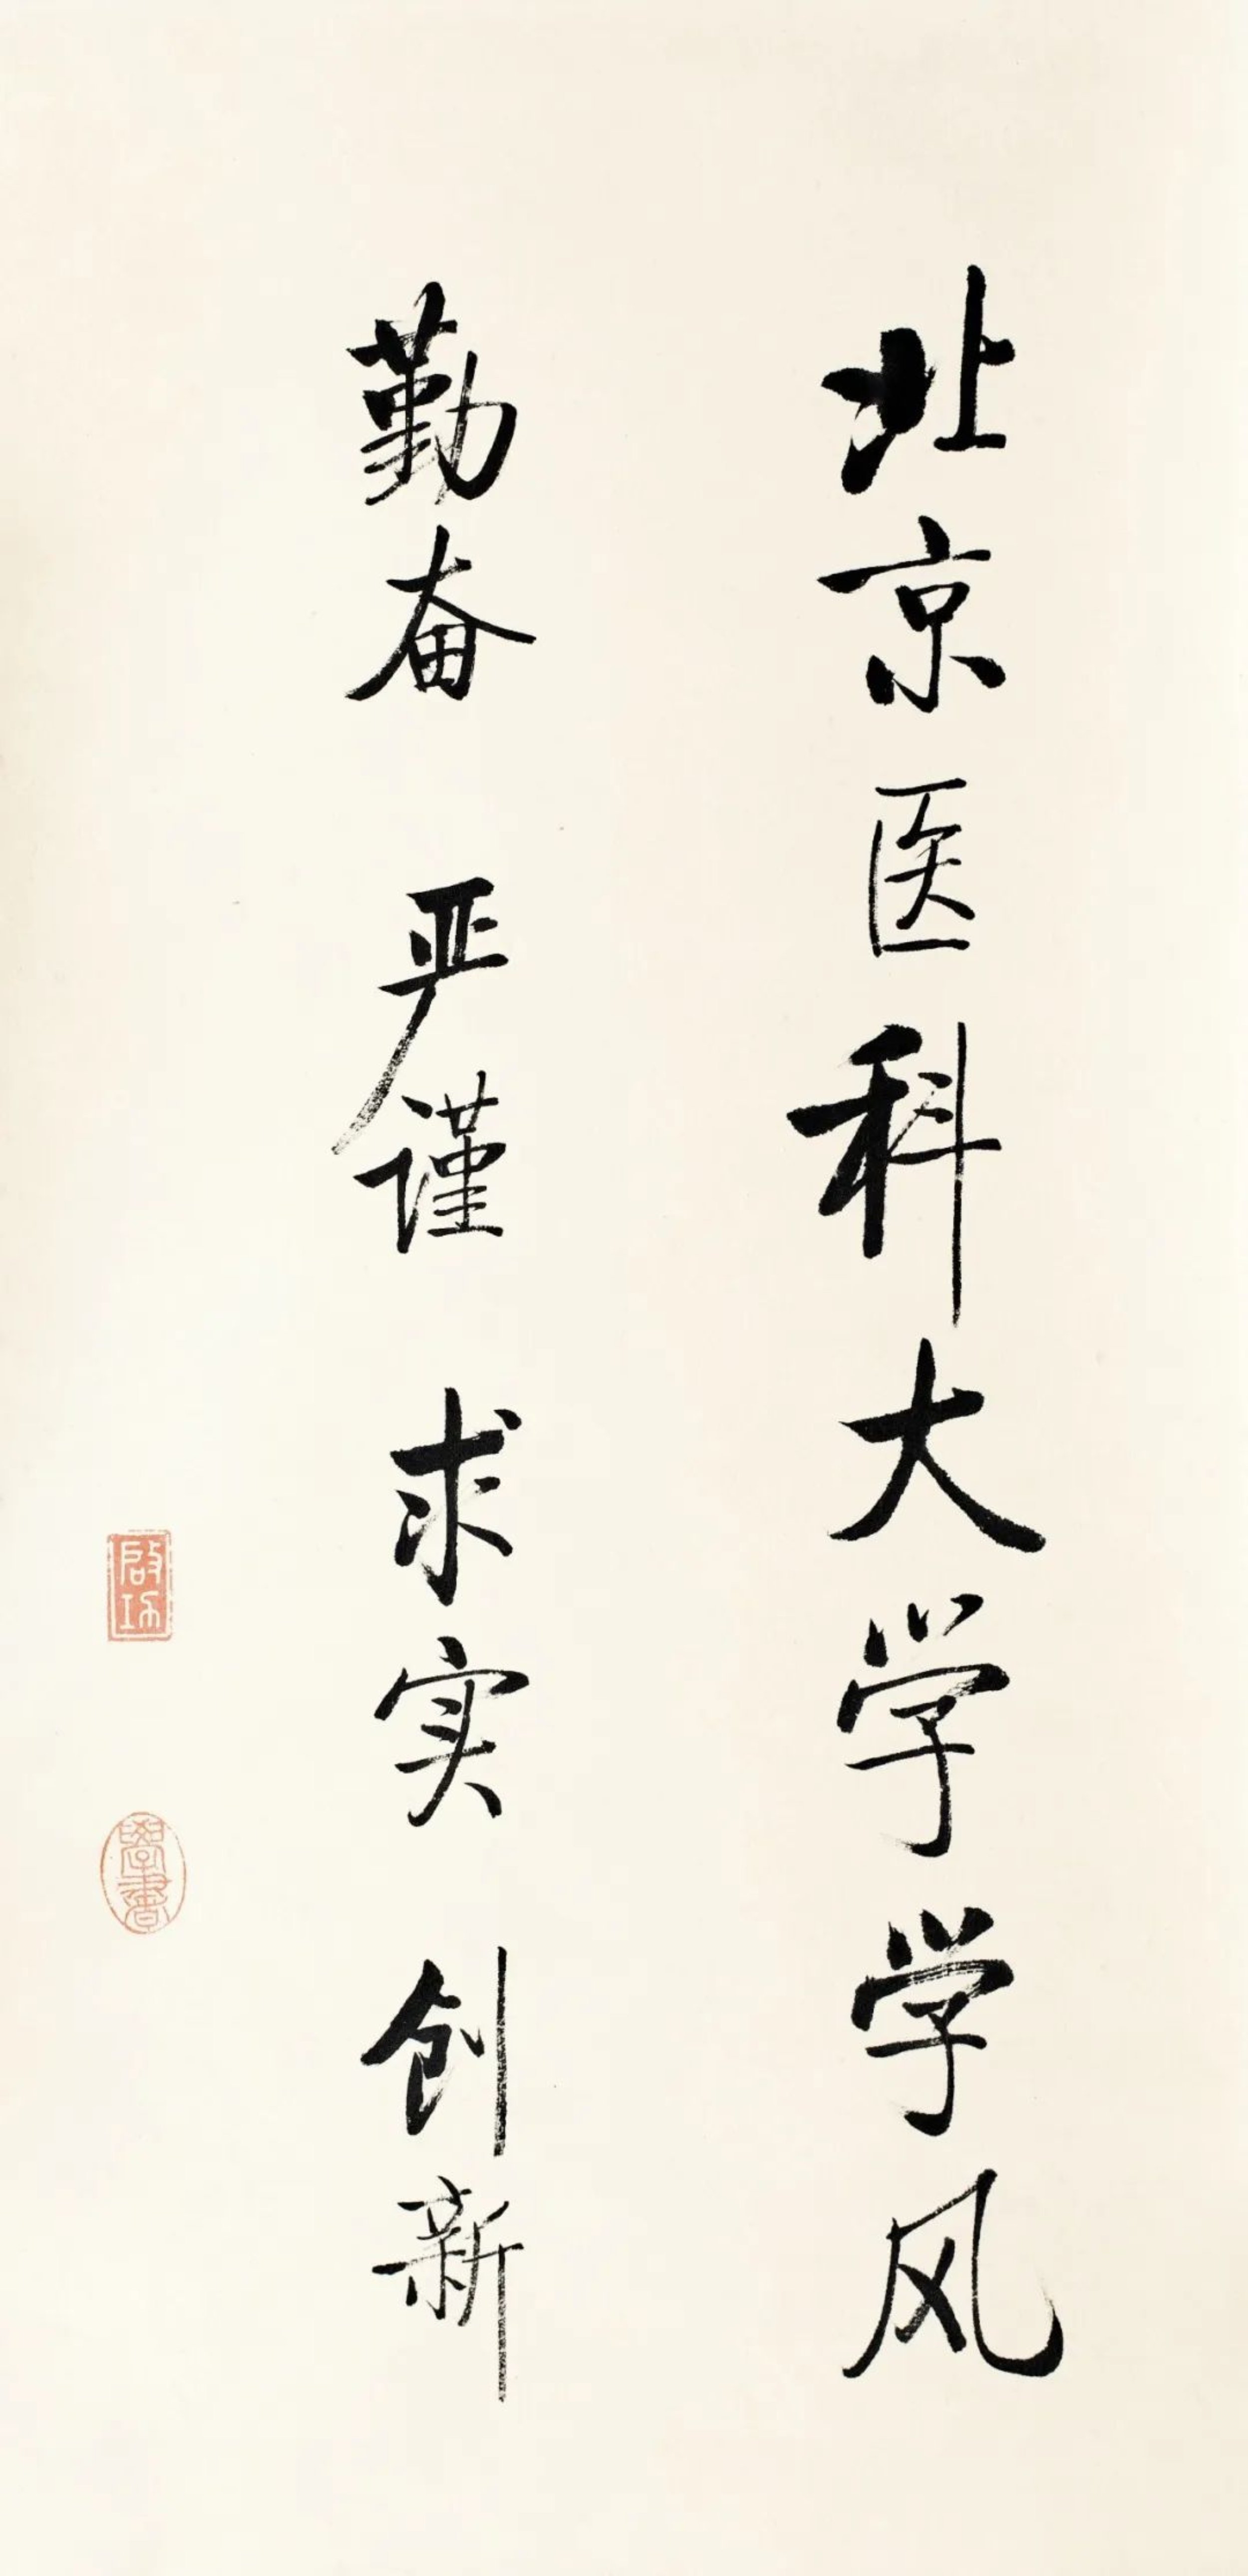 北京医科大学学风
勤奋 严谨 求实 创新
启功
學書